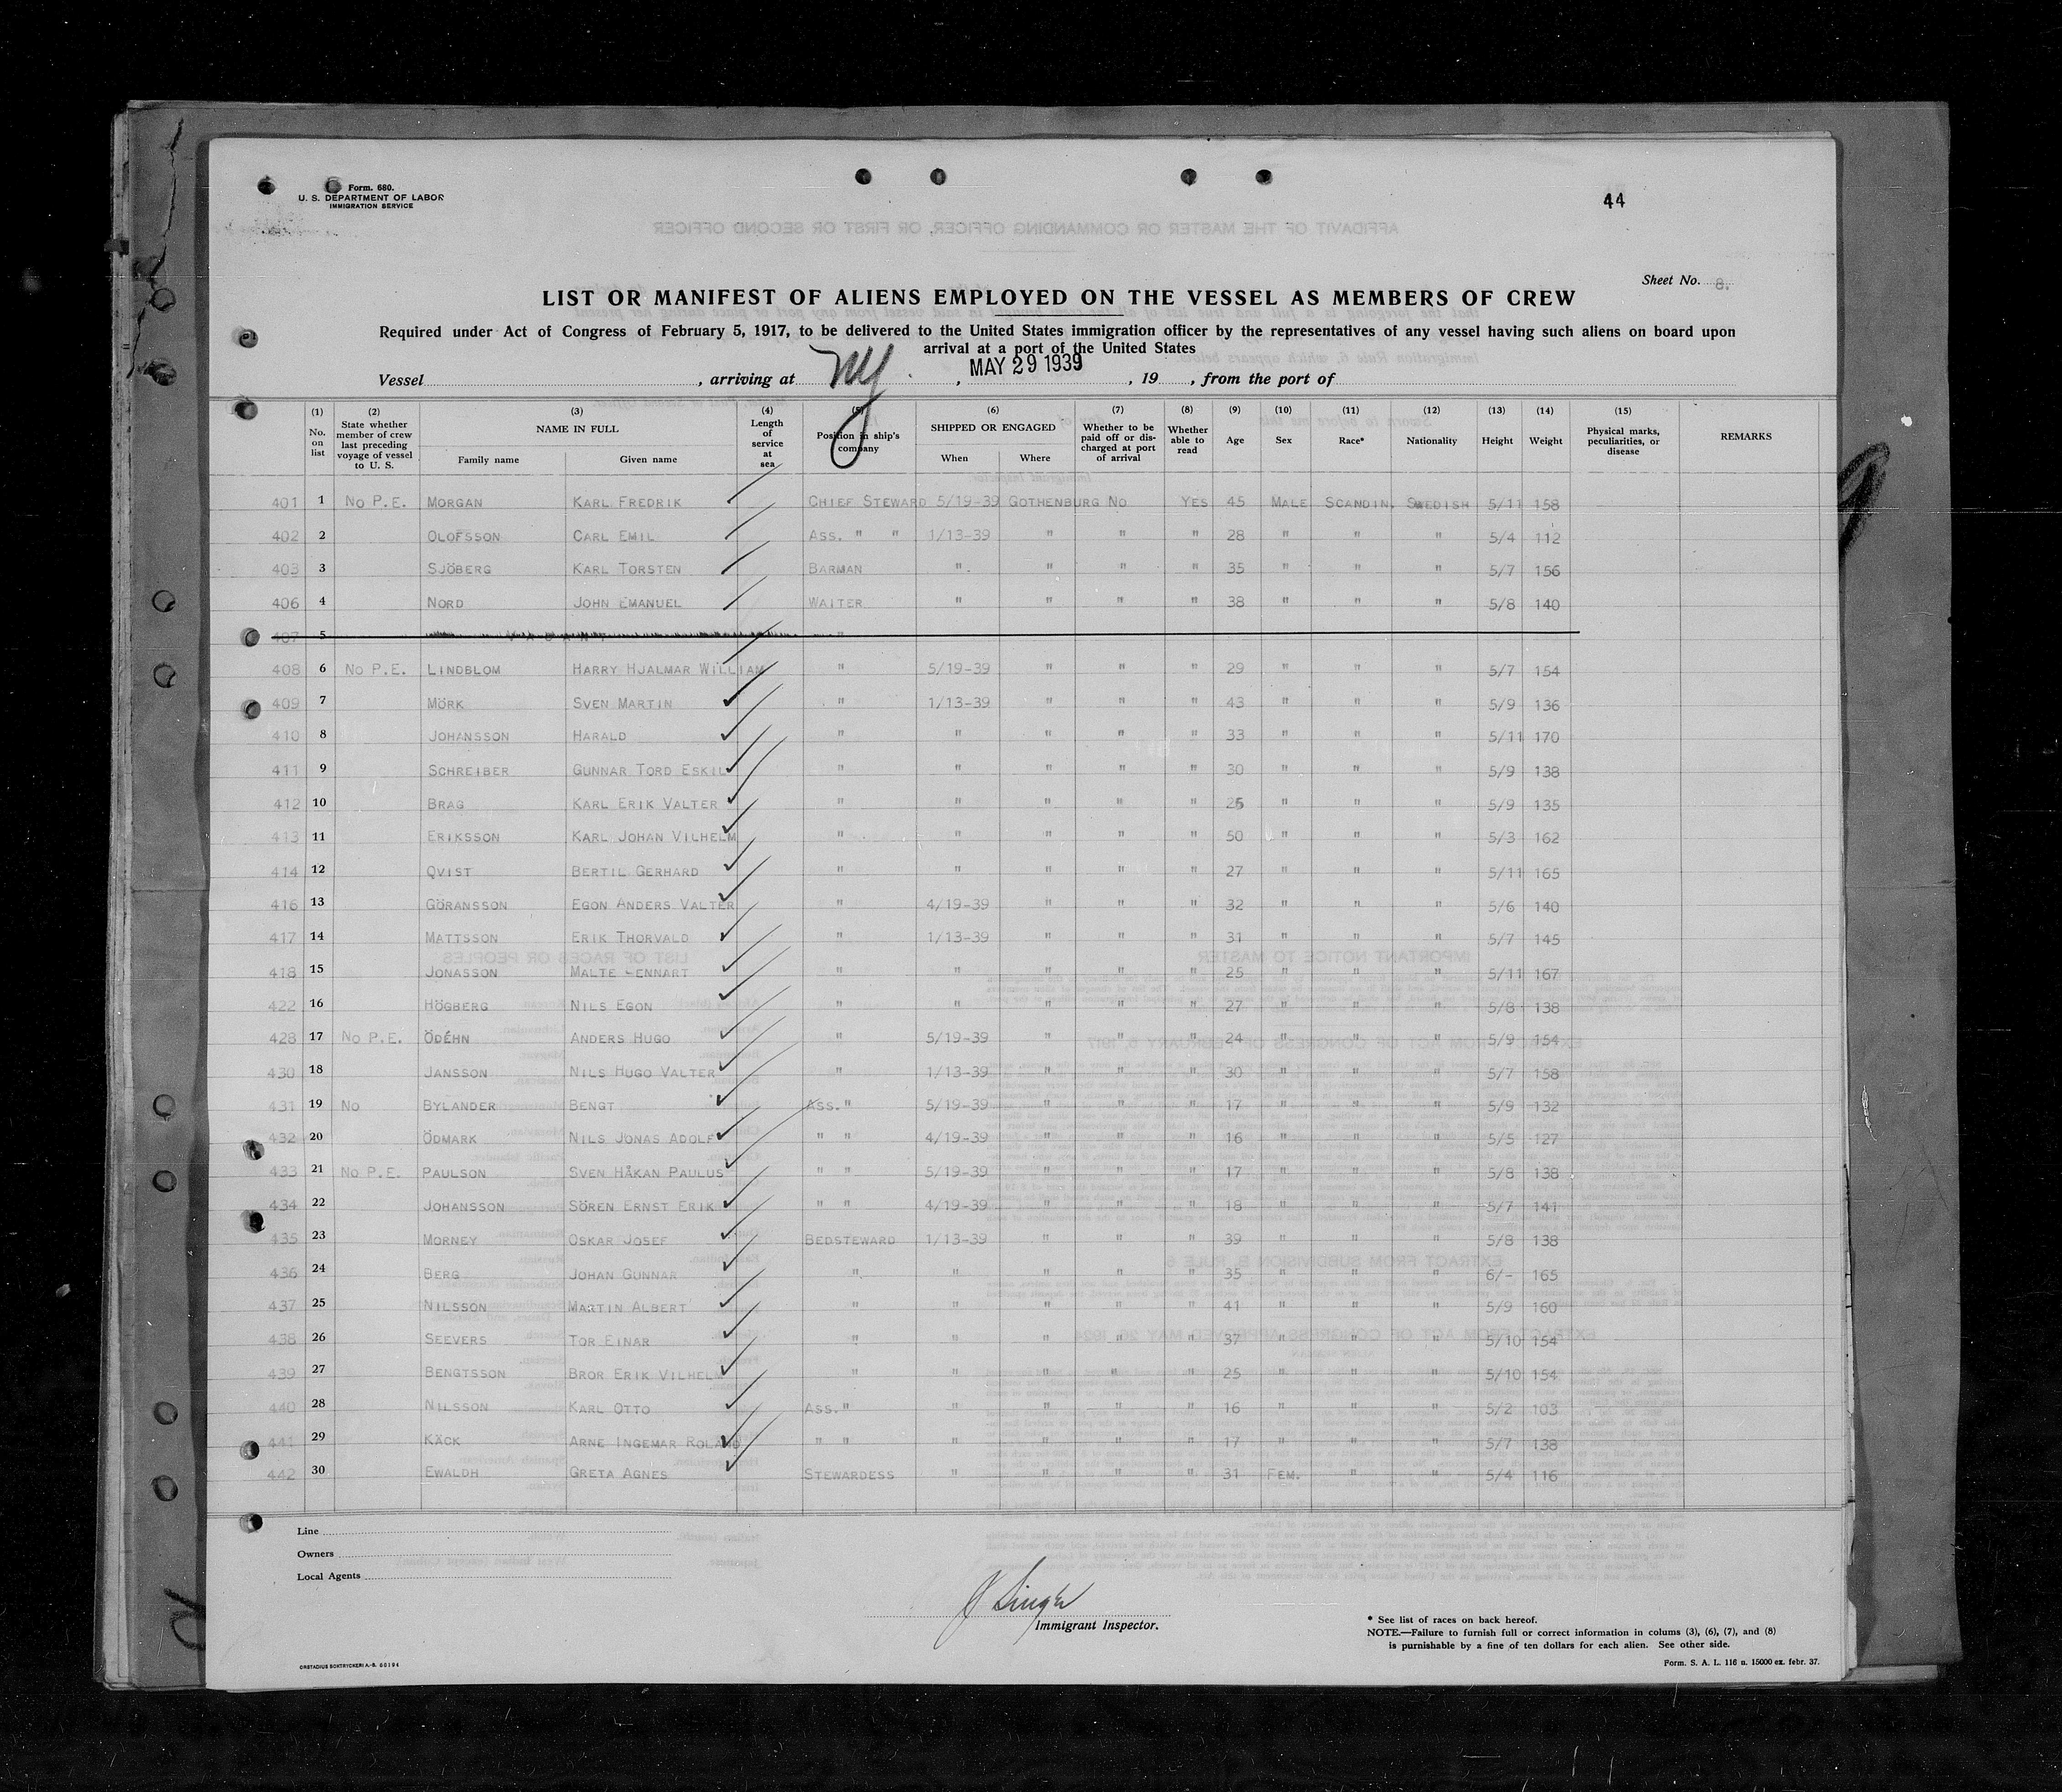 Form. 680.
U. S. DEPARTMENT OF LABOR
IMMIGRATION SERVICE
44
Sheet No. 8.
LIST OR MANIFEST OF ALIENS EMPLOYED ON THE VESSEL AS MEMBERS OF CREW
Required under Act of Congress of February 5, 1917, to be delivered to the United States immigration officer by the representatives of any vessel having such aliens on board upon
arrival at a port of the United States
Vessel , arriving at NY , MAY 29 1939 , 19 , from the port of
(1) No. on list (2) State whether member of crew last preceding voyage of vessel to U. S. (3) NAME IN FULL Family name Given name (4) Length of service at sea (5) Position in ship's company (6) SHIPPED OR ENGAGED When Where (7) Whether to be paid off or discharged at port of arrival (8) Whether able to read (9) Age (10) Sex (11) Race* (12) Nationality (13) Height (14) Weight (15) Physical marks, peculiarities, or disease REMARKS
401 1 No P.E. MORGAN KARL FREDRIK CHIEF STEWARD 5/19-39 GOTHENBURG NO YES 45 MALE SCANDIN. SWEDISH 5/11 158
402 2 OLOFSSON CARL EMIL ASS. " " 1/13-39 " " " 28 " " " 5/4 112
403 3 SJÖBERG KARL TORSTEN BARMAN " " " " 35 " " " 5/7 156
406 4 NORD JOHN EMANUEL WAITER " " " " 38 " " " 5/8 140
407 5 VACANT "
408 6 No P.E. LINDBLOM HARRY HJALMAR WILLIAM " 5/19-39 " " " 29 " " " 5/7 154
409 7 MÖRK SVEN MARTIN " 1/13-39 " " " 43 " " " 5/9 136
410 8 JOHANSSON HARALD " " " " " 33 " " " 5/11 170
411 9 SCHREIBER GUNNAR TORD ESKIL " " " " " 30 " " " 5/9 138
412 10 BRAG KARL ERIK VALTER " " " " " 25 " " " 5/9 135
413 11 ERIKSSON KARL JOHAN VILHELM " " " " " 50 " " " 5/3 162
414 12 QVIST BERTIL GERHARD " " " " " 27 " " " 5/11 165
416 13 GÖRANSSON EGON ANDERS VALTER " 4/19-39 " " " 32 " " " 5/6 140
417 14 MATTSSON ERIK THORVALD " 1/13-39 " " " 31 " " " 5/7 145
418 15 JONASSON MALTE LENNART " " " " " 25 " " " 5/11 167
422 16 HÖGBERG NILS EGON " " " " " 27 " " " 5/8 138
428 17 No P.E. ÖDÉHN ANDERS HUGO " 5/19-39 " " " 24 " " " 5/9 154
430 18 JANSSON NILS HUGO VALTER " 1/13-39 " " " 30 " " " 5/7 158
431 19 No BYLANDER BENGT ASS. " 5/19-39 " " " 17 " " " 5/9 132
432 20 ÖDMARK NILS JONAS ADOLF " " 4/19-39 " " " 16 " " " 5/5 127
433 21 No P.E. PAULSON SVEN HÅKAN PAULUS " " 5/19-39 " " " 17 " " " 5/8 138
434 22 JOHANSSON SÖREN ERNST ERIK " " 4/19-39 " " " 18 " " " 5/7 141
435 23 MORNEY OSKAR JOSEF BEDSTEWARD 1/13-39 " " " 39 " " " 5/8 138
436 24 BERG JOHAN GUNNAR " " " " " 35 " " " 6/- 165
437 25 NILSSON MARTIN ALBERT " " " " " 41 " " " 5/9 160
438 26 SEEVERS TOR EINAR " " " " " 37 " " " 5/10 154
439 27 BENGTSSON BROR ERIK VILHELM " " " " " 25 " " " 5/10 154
440 28 NILSSON KARL OTTO ASS. " " " " " 16 " " " 5/2 103
441 29 KÄCK ARNE INGEMAR ROLAND " " " " " " 17 " " " 5/7 138
442 30 EWALDH GRETA AGNES STEWARDESS " " " " 31 FEM. " " 5/4 116
Line
Owners
Local Agents
J Singer
Immigrant Inspector.
* See list of races on back hereof.
NOTE.—Failure to furnish full or correct information in colums (3), (6), (7), and (8)
is purnishable by a fine of ten dollars for each alien. See other side.
Form. S. A. L. 116 n. 15000 ex. febr. 37.